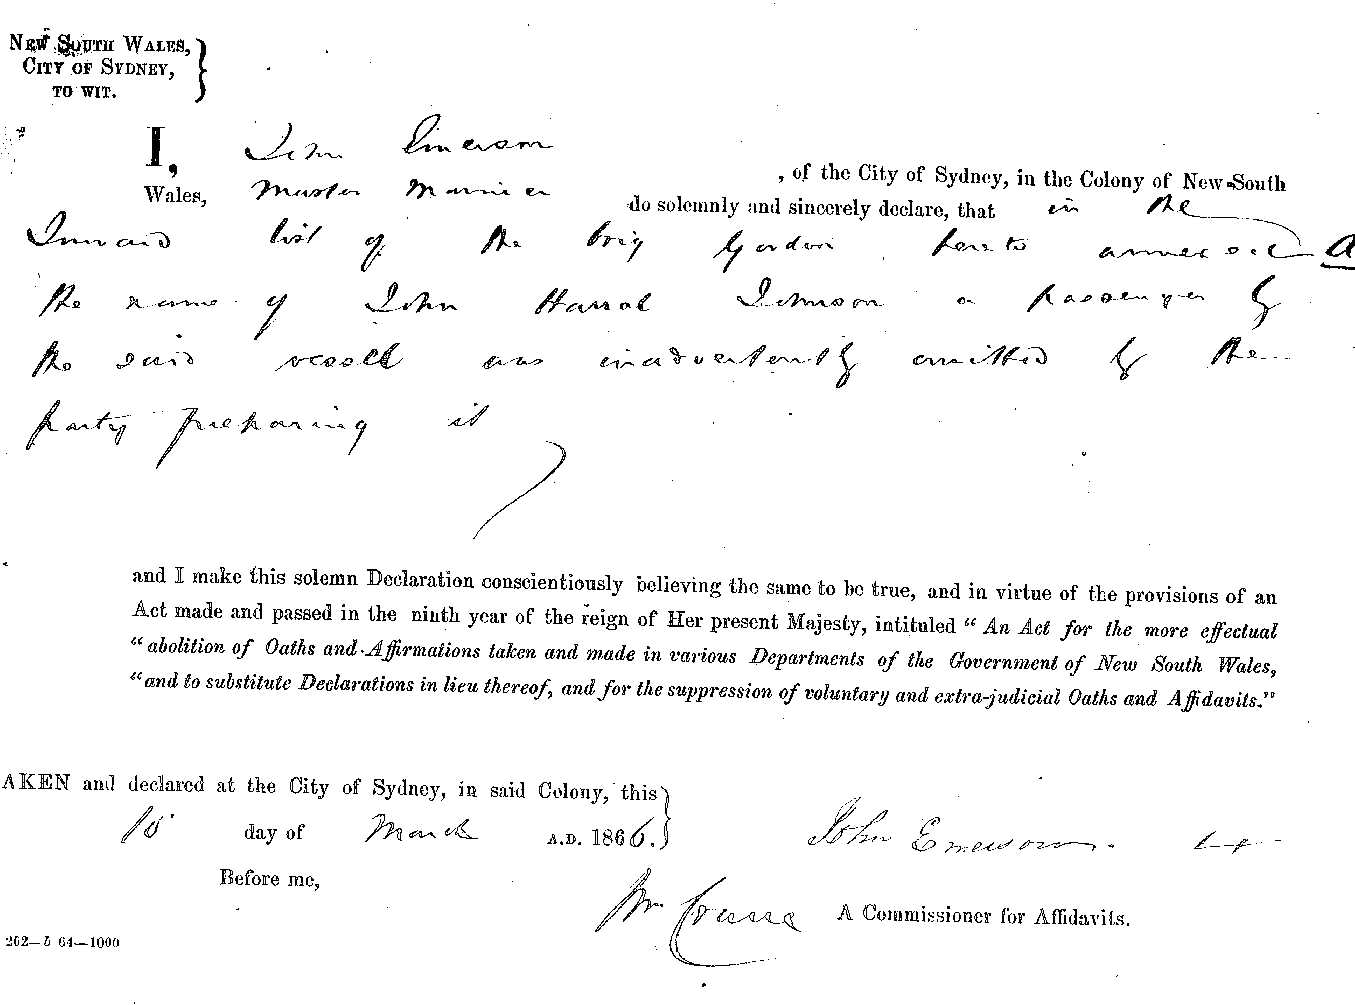 NEW SOUTH WALES,
CITY OF SYDNEY,
TO WIT.
I, John Emerson
, of the City of Sydney, in the Colony of New South
Wales, Master Mariner do solemnly and sincerely declare, that in the
Inward list of the brig Gordon hereto annexed A
the name of John Harrot Johnson a passenger by
the said vessel was inadvertently omitted by the
party preparing it
and I make this solemn Declaration conscientiously believing the same to be true, and in virtue of the provisions of an
Act made and passed in the ninth year of the reign of Her present Majesty, intituled “An Act for the more effectual
“abolition of Oaths and Affirmations taken and made in various Departments of the Government of New South Wales,
“and to substitute Declarations in lieu thereof, and for the suppression of voluntary and extra-judicial Oaths and Affidavits.”
AKEN and declared at the City of Sydney, in said Colony, this
day of March A.D. 1866.
John Emerson
Before me,
A Commissioner for Affidavits.
202—b 64—1000